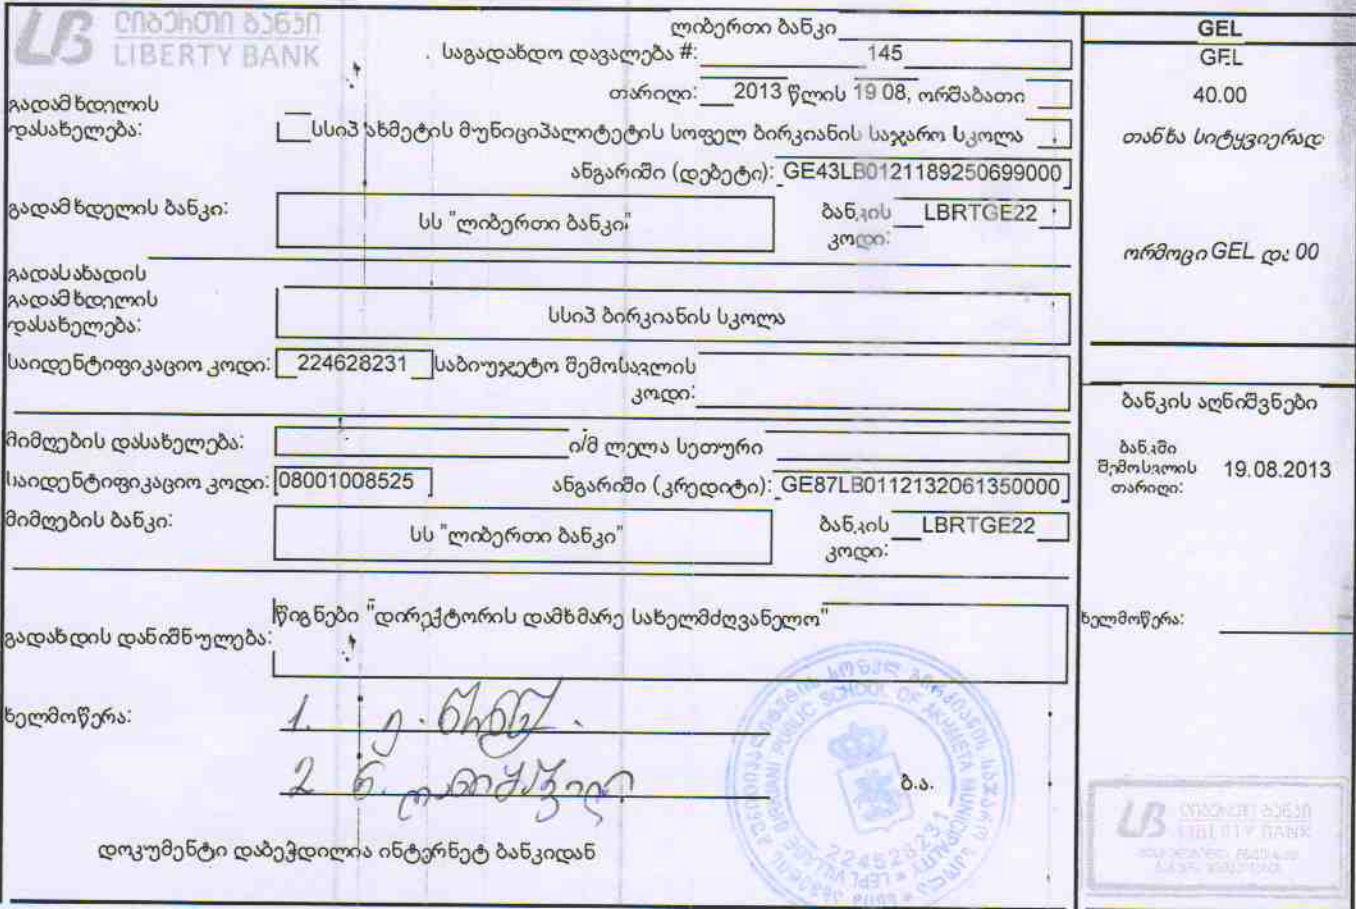 ლიბერთი ბანკი
LIBERTY BANK
ლიბერთი ბანკი
საგადახდო დავალება #: 145
თარიღი: 2013 წლის 19 08, ორშაბათი
გადამხდელის
დასახელება: სსიპ ახმეტის მუნიციპალიტეტის სოფელ ბირკიანის საჯარო სკოლა
ანგარიში (დებეტი): GE43LB0121189250699000
გადამხდელის ბანკი: სს "ლიბერთი ბანკი" ბანკის LBRTGE22
კოდი:
გადასახადის
გადამხდელის
დასახელება: სსიპ ბირკიანის სკოლა
საიდენტიფიკაციო კოდი: 224628231 საბიუჯეტო შემოსავლის
კოდი:
მიმღების დასახელება: ი/მ ლელა სეთური
საიდენტიფიკაციო კოდი: 08001008525 ანგარიში (კრედიტი): GE87LB0112132061350000
მიმღების ბანკი: სს "ლიბერთი ბანკი" ბანკის LBRTGE22
კოდი:
წიგნები "დირექტორის დამხმარე სახელმძღვანელო"
გადახდის დანიშნულება:
ხელმოწერა: 1.
2 ნ.
ბ.ა.
დოკუმენტი დაბეჭდილია ინტერნეტ ბანკიდან
GEL
GEL
40.00
თანხა სიტყვიერად
ორმოცი GEL და 00
ბანკის აღნიშვნები
ბანკში
შემოსვლის 19.08.2013
თარიღი:
ხელმოწერა:
PUBLIC SCHOOL OF AKHMETA MUNICIPALITY
ლიბერთი ბანკი
LIBERTY BANK